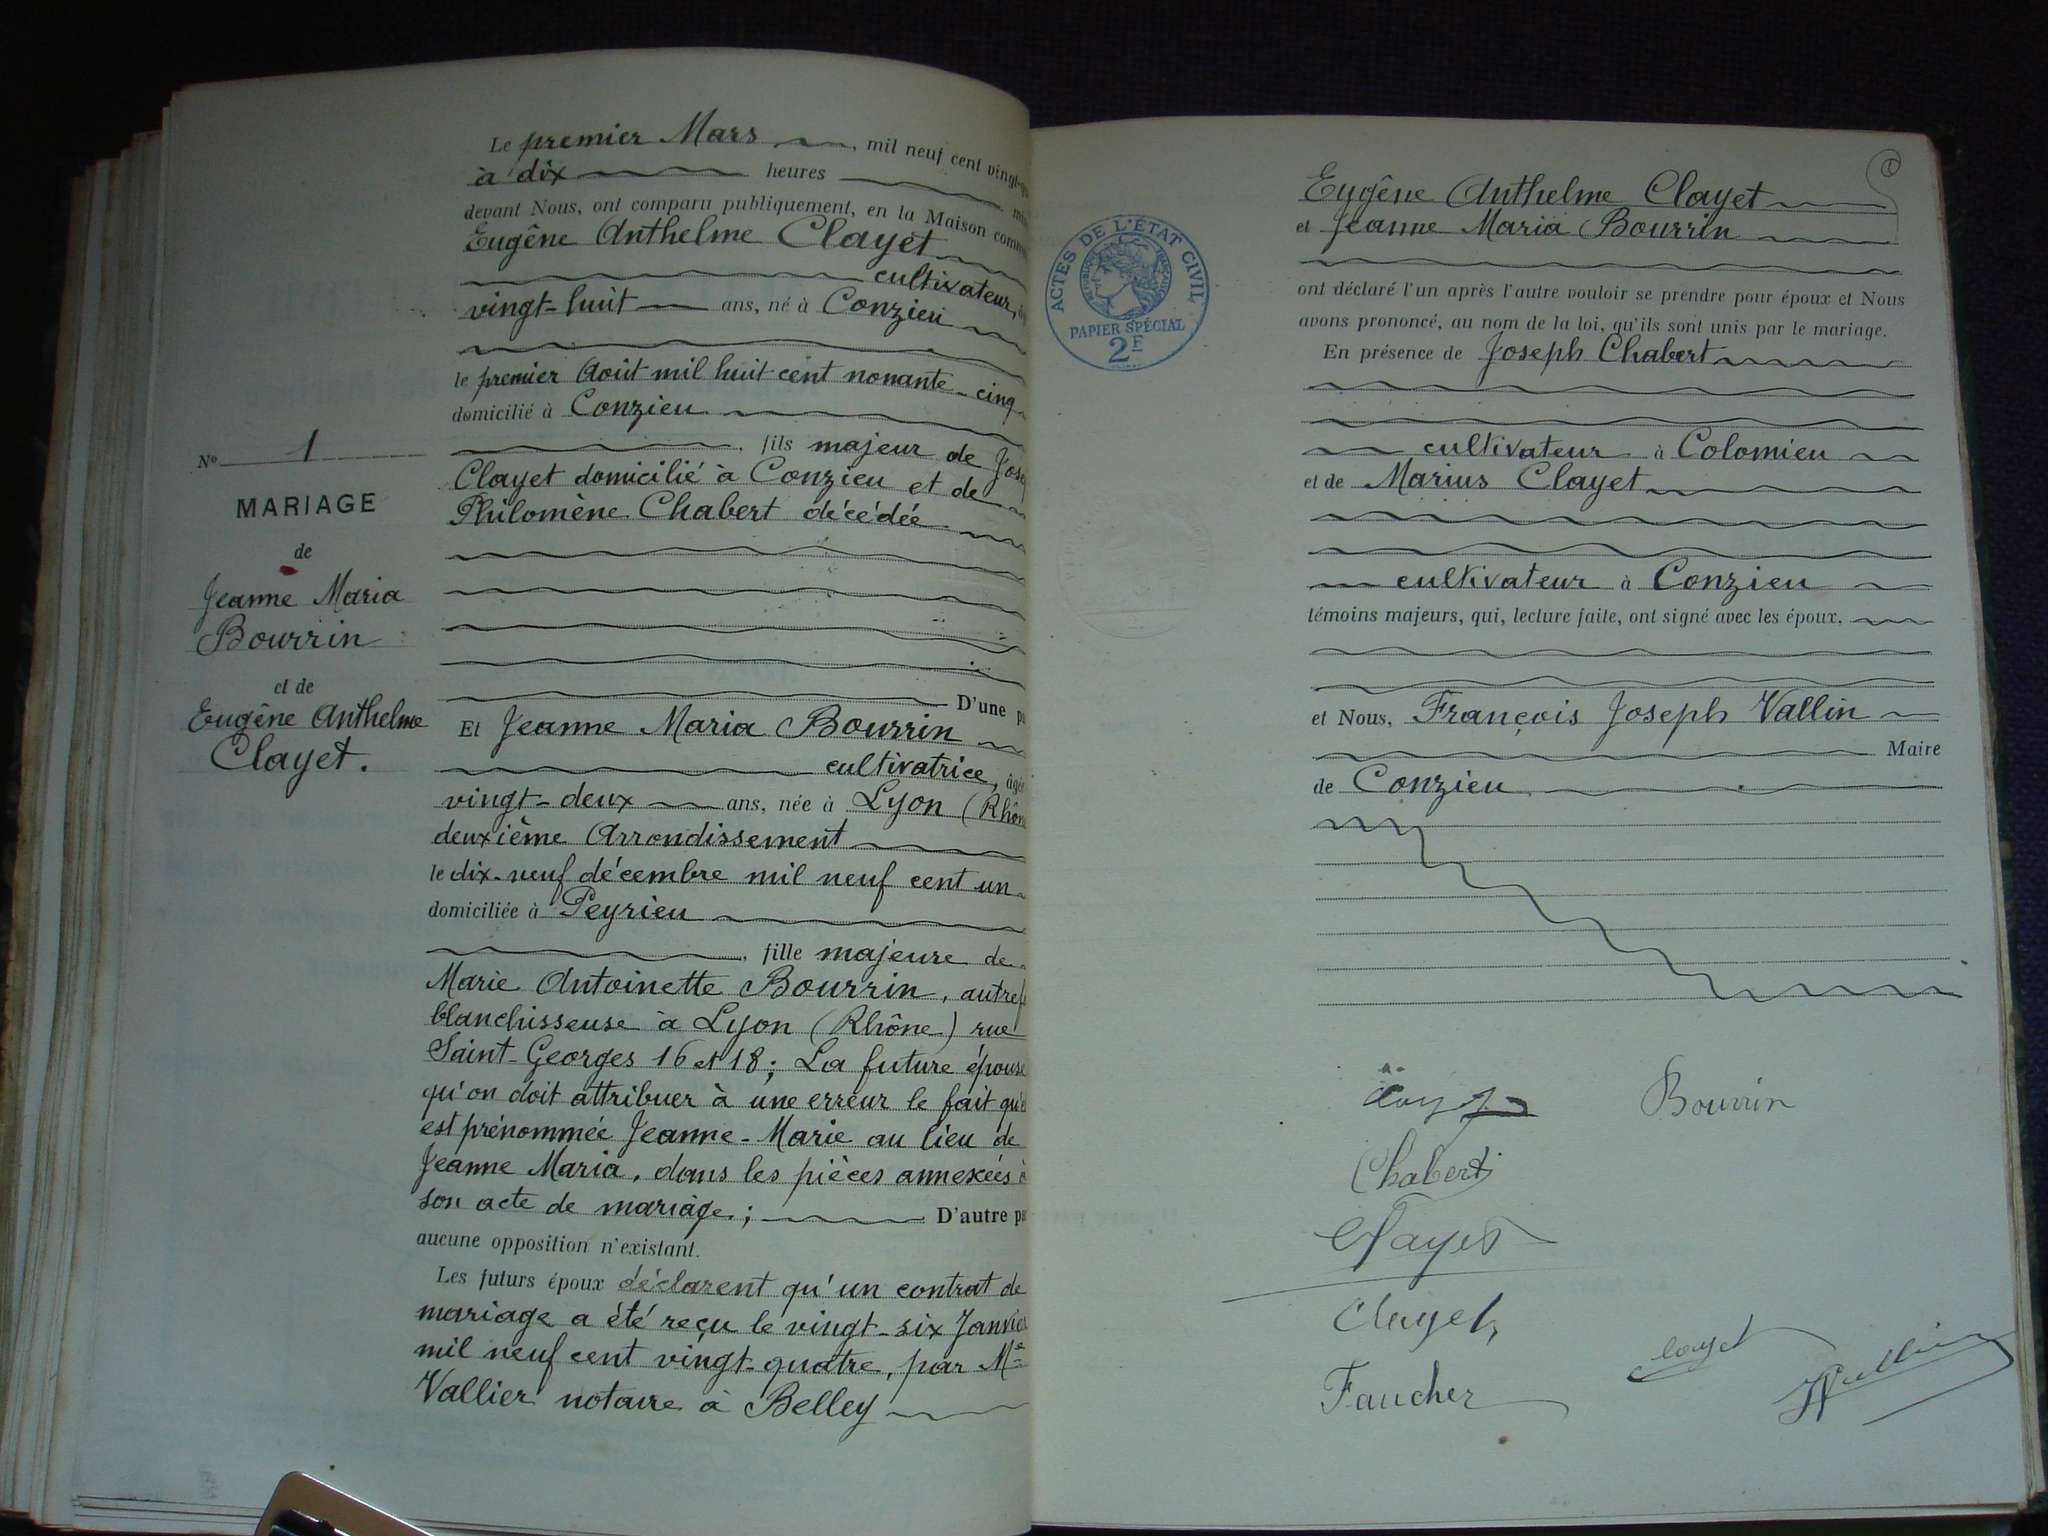 Le premier Mars, mil neuf cent vingt-
à dix heures
devant Nous, ont comparu publiquement, en la Maison
Eugène Anthelme Clayet
cultivateur,
vingt-huit ans, né à Conzieu
le premier Août mil huit cent nonante-cinq
domicilié à Conzieu
, fils majeur de
Clayet domicilié à Conzieu et de
Philomène Chabert décédée
D'une
Et Jeanne Maria Bourrin
cultivatrice,
vingt-deux ans, née à Lyon (
deuxième Arrondissement
le dix-neuf décembre mil neuf cent un
domiciliée à Peyrieu
, fille majeure de
Marie Antoinette Bourrin,
blanchisseuse à Lyon (Rhône) rue
Saint-Georges 16 et 18; La future épouse
qu'on doit attribuer à une erreur le fait
est prénommée Jeanne-Marie au lieu de
Jeanne Maria, dans les pièces annexées
son acte de mariage; D'autre
aucune opposition n'existant.
Les futurs époux déclarent qu'un contrat de
mariage a été reçu le vingt-six Janvier
mil neuf cent vingt-quatre, par Me
Vallier notaire à Belley
No 1
MARIAGE
de
Jeanne Maria
Bourrin
et de
Eugène Anthelme
Clayet.
ACTES DE L'ÉTAT CIVIL
RÉPUBLIQUE FRANÇAISE
PAPIER SPÉCIAL
2F
Eugène Anthelme Clayet
et Jeanne Maria Bourrin
ont déclaré l'un après l'autre vouloir se prendre pour époux et Nous
avons prononcé, au nom de la loi, qu'ils sont unis par le mariage.
En présence de Joseph Chabert
cultivateur à Colomieu
et de Marius Clayet
cultivateur à Conzieu
témoins majeurs, qui, lecture faite, ont signé avec les époux,
et Nous, François Joseph Vallin
Maire
de Conzieu
Bourrin
Chabert
Clayet
Clayet
Faucher
Clayet
Vallin